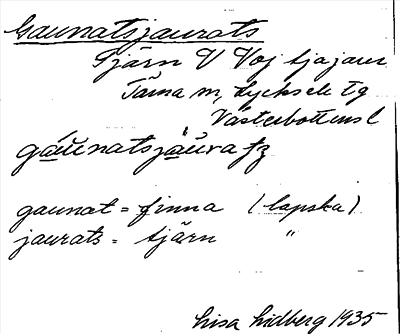 Gaunatsjaurats
Tjärn V Vojtjajaur
Tärna sn, Lycksele tg
Västerbottens l
gáu̇natsjáu̇ratz
gaunat = finna (lapska)
jaurats = tjärn "
Lisa Lidberg 1935